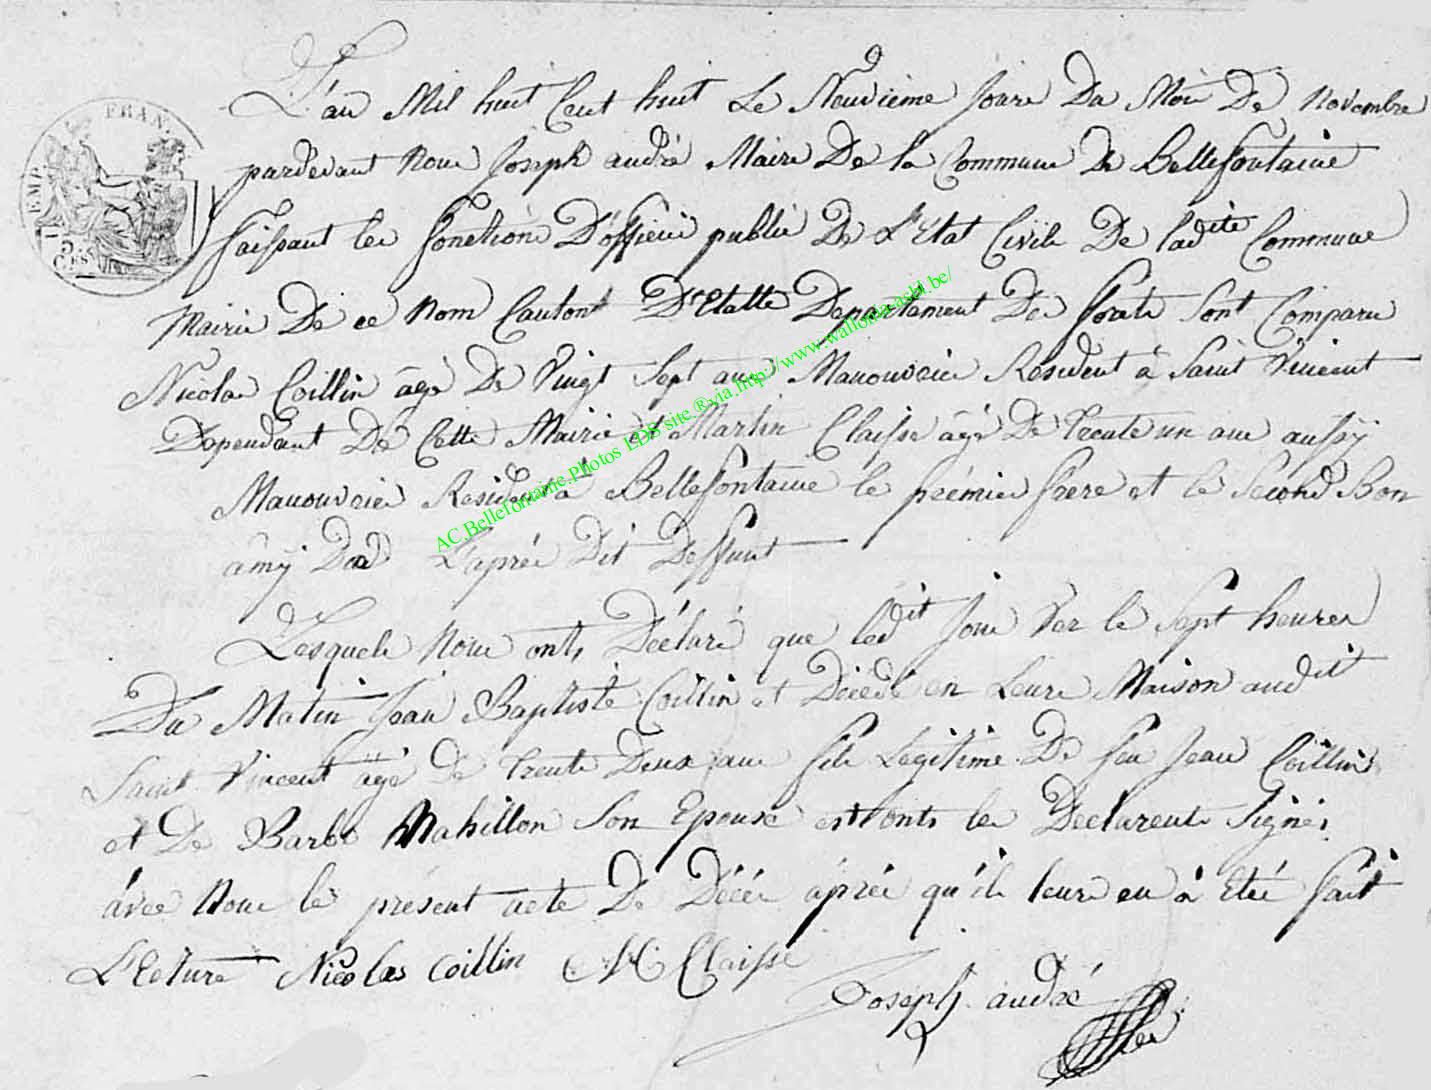 EMP. FRAN.
5
CES
L'an Mil huit Cent huit Le Neuvième Jour Du Moi De Novembre
pardevant Nous Joseph andré Maire De la Commune De Bellefontaine
faissant les fonctions D'officié public De L'Etat Civile De ladite Commune
Mairie De ce Nom Canton D'Etalle Departement Des forêts Sont Comparu
Nicolas Coillin âgé De Vingt Sept ans Manouvrier Resident à Saint Vincent
Dependant De Cette Mairie et Martin Claisse âgé De trente un ans aussÿ
Manouvrier Resident à Bellefontaine le prémier frere et le Second Bon
âmÿ L'après Dit Deffunt
Lesquels Nous onts Déclaré que ledit Jour Ver le Sept heures
Du Matin Jean Baptiste Coillin et Décédé en Leure Maison audit
Saint Vincent âgé De trente Deux ans fils Legitime De feu Jean Coillin
et De Barbe Mahillon Son Epouse et onts les Declarents Signés
avec Nous le présent acte De Décés après qu'il leure en à Eté fait
L'Ecture Nicolas Coillin M Claisse
Joseph andré
AC.Bellefontaine.Photos LDS site.®via.http://www.wallonia-asbl.be/